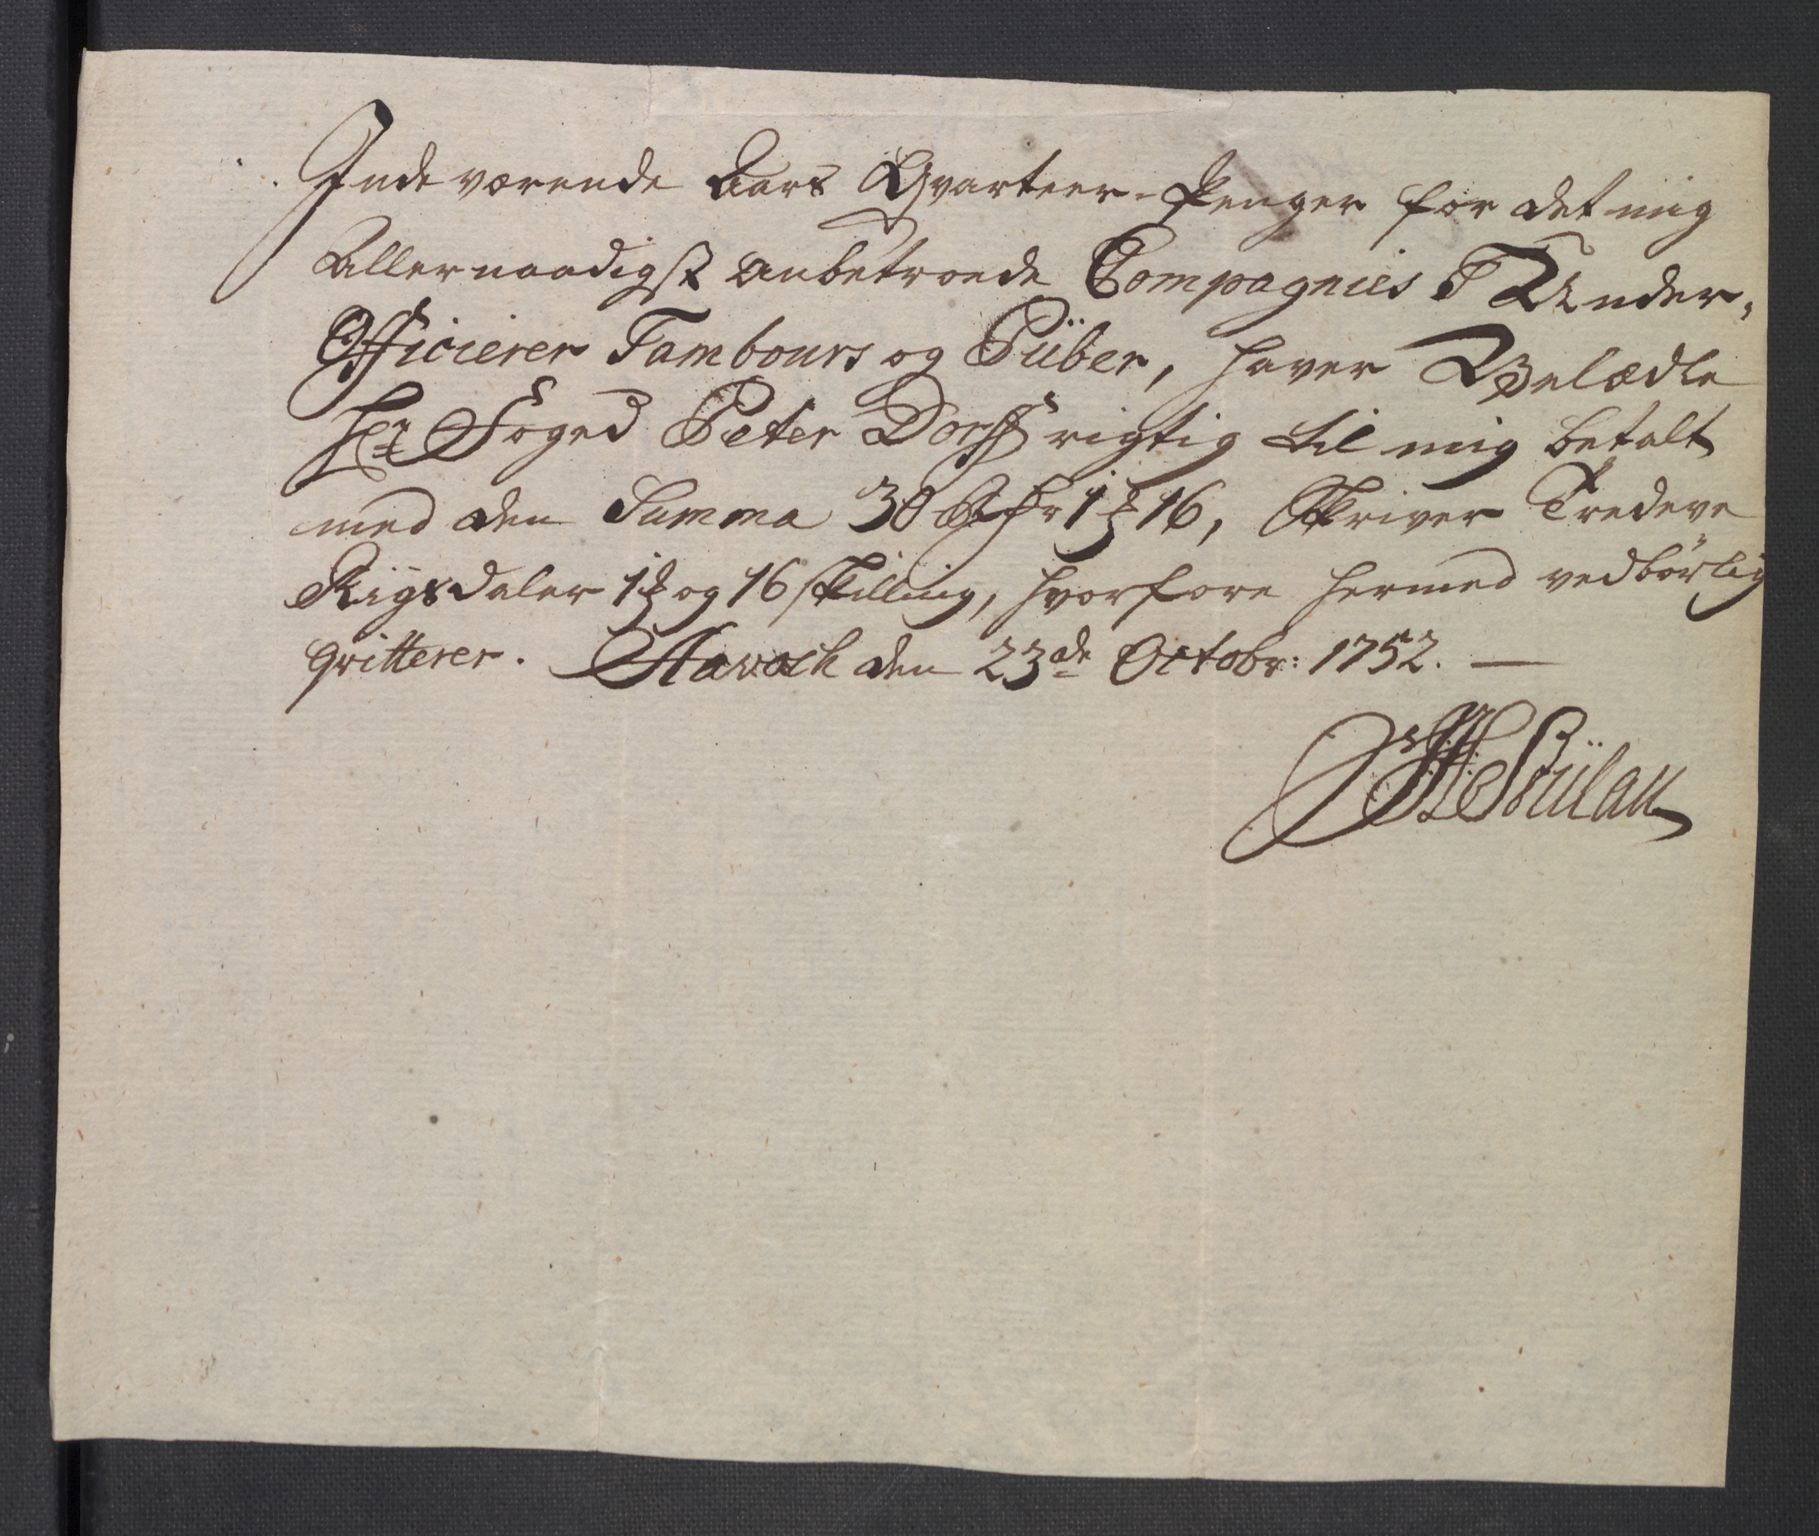 Indeværende Aars Qvarteer-Penger for det mig
Allernaadigst anbetroede Compagnies Under-
Officierer Tambours og Piiber, haver Velædle
Hr Foged Peter Dorff rigtig til mig betalt
med den Summa 30 Rdr 1 ƶ 16, Skriver Tredeve
Rigsdaler 1 ƶ og 16 skilling, hvorfore hermed vedbørlig
qvitterer. den 23de Octobr: 1752. —
Bülau